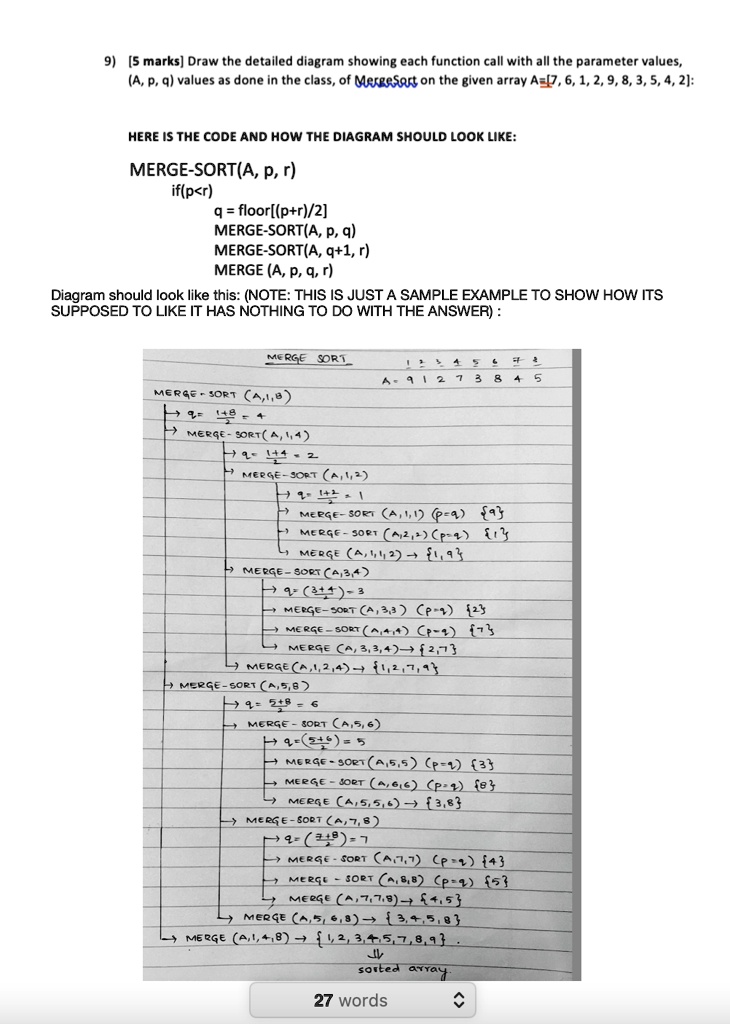 9) [5 marks] Draw the detailed diagram showing each function call with all the parameter values,
(A, p, q) values as done in the class, of MergeSort on the given array A=[7, 6, 1, 2, 9, 8, 3, 5, 4, 2]:
HERE IS THE CODE AND HOW THE DIAGRAM SHOULD LOOK LIKE:
MERGE-SORT(A, p, r)
if(p<r)
q = floor[(p+r)/2]
MERGE-SORT(A, p, q)
MERGE-SORT(A, q+1, r)
MERGE (A, p, q, r)
Diagram should look like this: (NOTE: THIS IS JUST A SAMPLE EXAMPLE TO SHOW HOW ITS
SUPPOSED TO LIKE IT HAS NOTHING TO DO WITH THE ANSWER) :
MERGE SORT
1 2 3 4 5 6 7 8
A = 9 1 2 7 3 8 4 5
MERGE-SORT (A,1,8)
→ q = 1+8/2 = 4
→ MERGE-SORT (A,1,4)
→ q = 1+4/2 = 2
→ MERGE-SORT (A,1,2)
→ q = 1+2/2 = 1
→ MERGE-SORT (A,1,1) (p=q) {9}
→ MERGE-SORT (A,2,2) (p=q) {1}
→ MERGE (A,1,1,2) → {1,9}
→ MERGE-SORT (A,3,4)
→ q = (3+4/2) = 3
→ MERGE-SORT (A,3,3) (p=q) {2}
→ MERGE-SORT (A,4,4) (p=q) {7}
→ MERGE (A,3,3,4) → {2,7}
→ MERGE (A,1,2,4) → {1,2,7,9}
→ MERGE-SORT (A,5,8)
→ q = 5+8/2 = 6
→ MERGE-SORT (A,5,6)
→ q = (5+6/2) = 5
→ MERGE-SORT (A,5,5) (p=q) {3}
→ MERGE-SORT (A,6,6) (p=q) {8}
→ MERGE (A,5,5,6) → {3,8}
→ MERGE-SORT (A,7,8)
→ q = (7+8/2) = 7
→ MERGE-SORT (A,7,7) (p=q) {4}
→ MERGE-SORT (A,8,8) (p=q) {5}
→ MERGE (A,7,7,8) → {4,5}
→ MERGE (A,5,6,8) → {3,4,5,8}
→ MERGE (A,1,4,8) → {1,2,3,4,5,7,8,9}.
⇓
sorted array
27 words